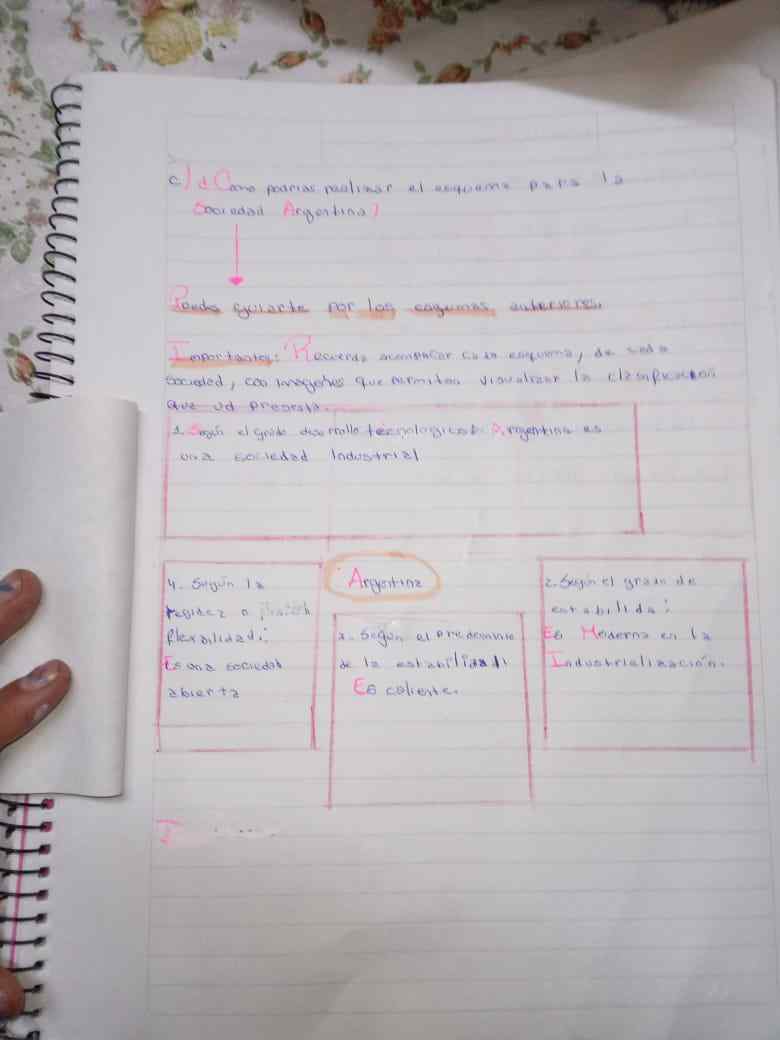 c) ¿Como podrias realizar el esquema para la
Sociedad Argentina?
Puedes guiarte por los esquemas anteriores.
Importantes: Recuerda acompañar cada esquema, de cada
sociedad, con imagenes que permitan visualizar la clasificacion
que ud presenta.
1. Según el grado desarrollo tecnologico: Argentina es
una sociedad Industrial
4. Según la
regidez o
flexibilidad:
Es una sociedad
abierta
Argentina
3. Según el predominio
de la estabilidad:
Es caliente.
2. Según el grado de
estabilida:
Es Moderna en la
Industrialización.